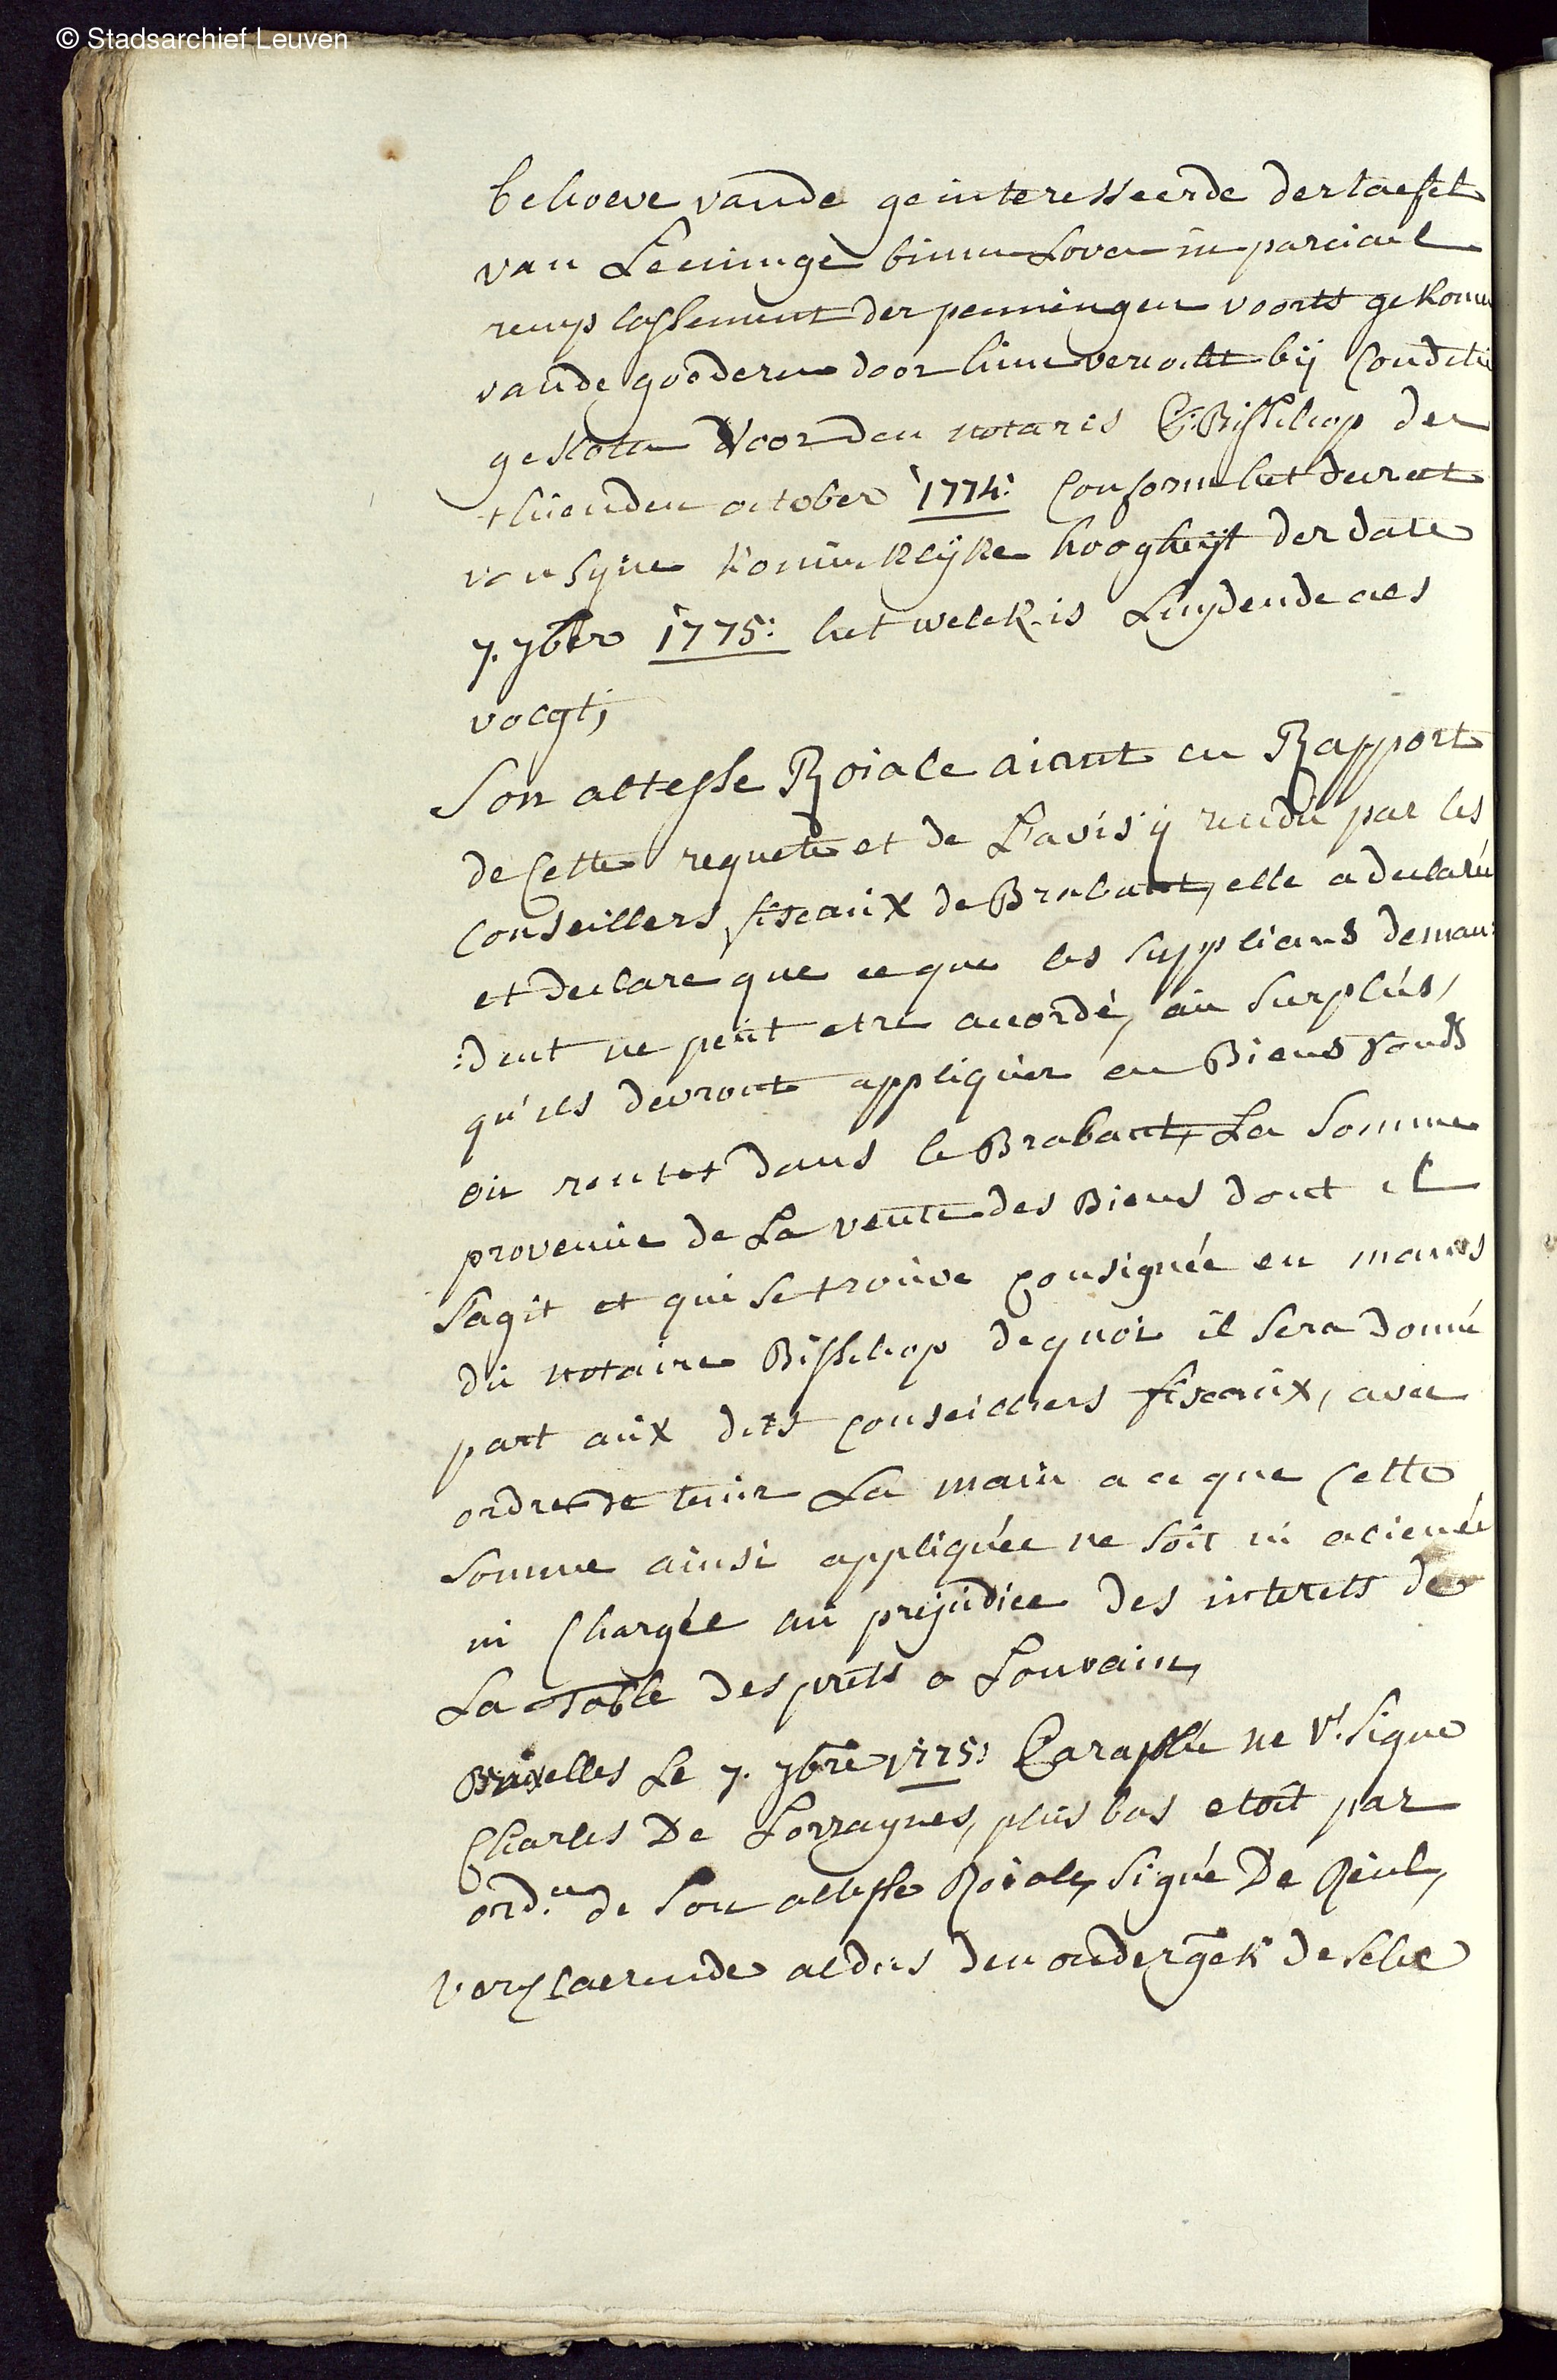 © Stadsarchief Leuven
behoeve vande geinteresseerde der taefel
van Leeninge binnen Loven in parciael
remplassement der penningen voorts gekomen
vande goederen door hun vercocht bij Conditie
gesloten voorden notaris Bisschop der
thienden october 1774: Conform het decreet
van syne koninklyke hoogheyt der date
7. 7ber 1775: het welck is Luydende als
volgt;
Son altesse Roiale aiant eu Rapport
de Cette requete et de L'avis y rendu par les
Conseillers fiscaux de Brabant, elle a declaré
et declare que ce que les supplians deman:
:dent ne peut etre accordé, au surplus,
qu'ils devront appliquer en Biens fonds
ou rentes dans le Brabant, La somme
provenue de La vente des Biens dont il
s'agit et qui se trouve Consignée en mains
du notaire Bisschop de quoi il sera donné
part aux dits Conseillers fiscaux, avec
ordre de tenir La main a ce que Cette
somme ainsi appliquée ne soit ni alienée
ni Chargée au prejudice des interets de
La Table des prets a Louvain,
Bruxelles Le 7. 7bre 1775: Paraphé ne Vt. Signe
Charles De Lorraynes, plus bas etoit par
ord.ce de Son altesse Roiale, signé De Reul,
verclaerende aldus den ondergek. deselve